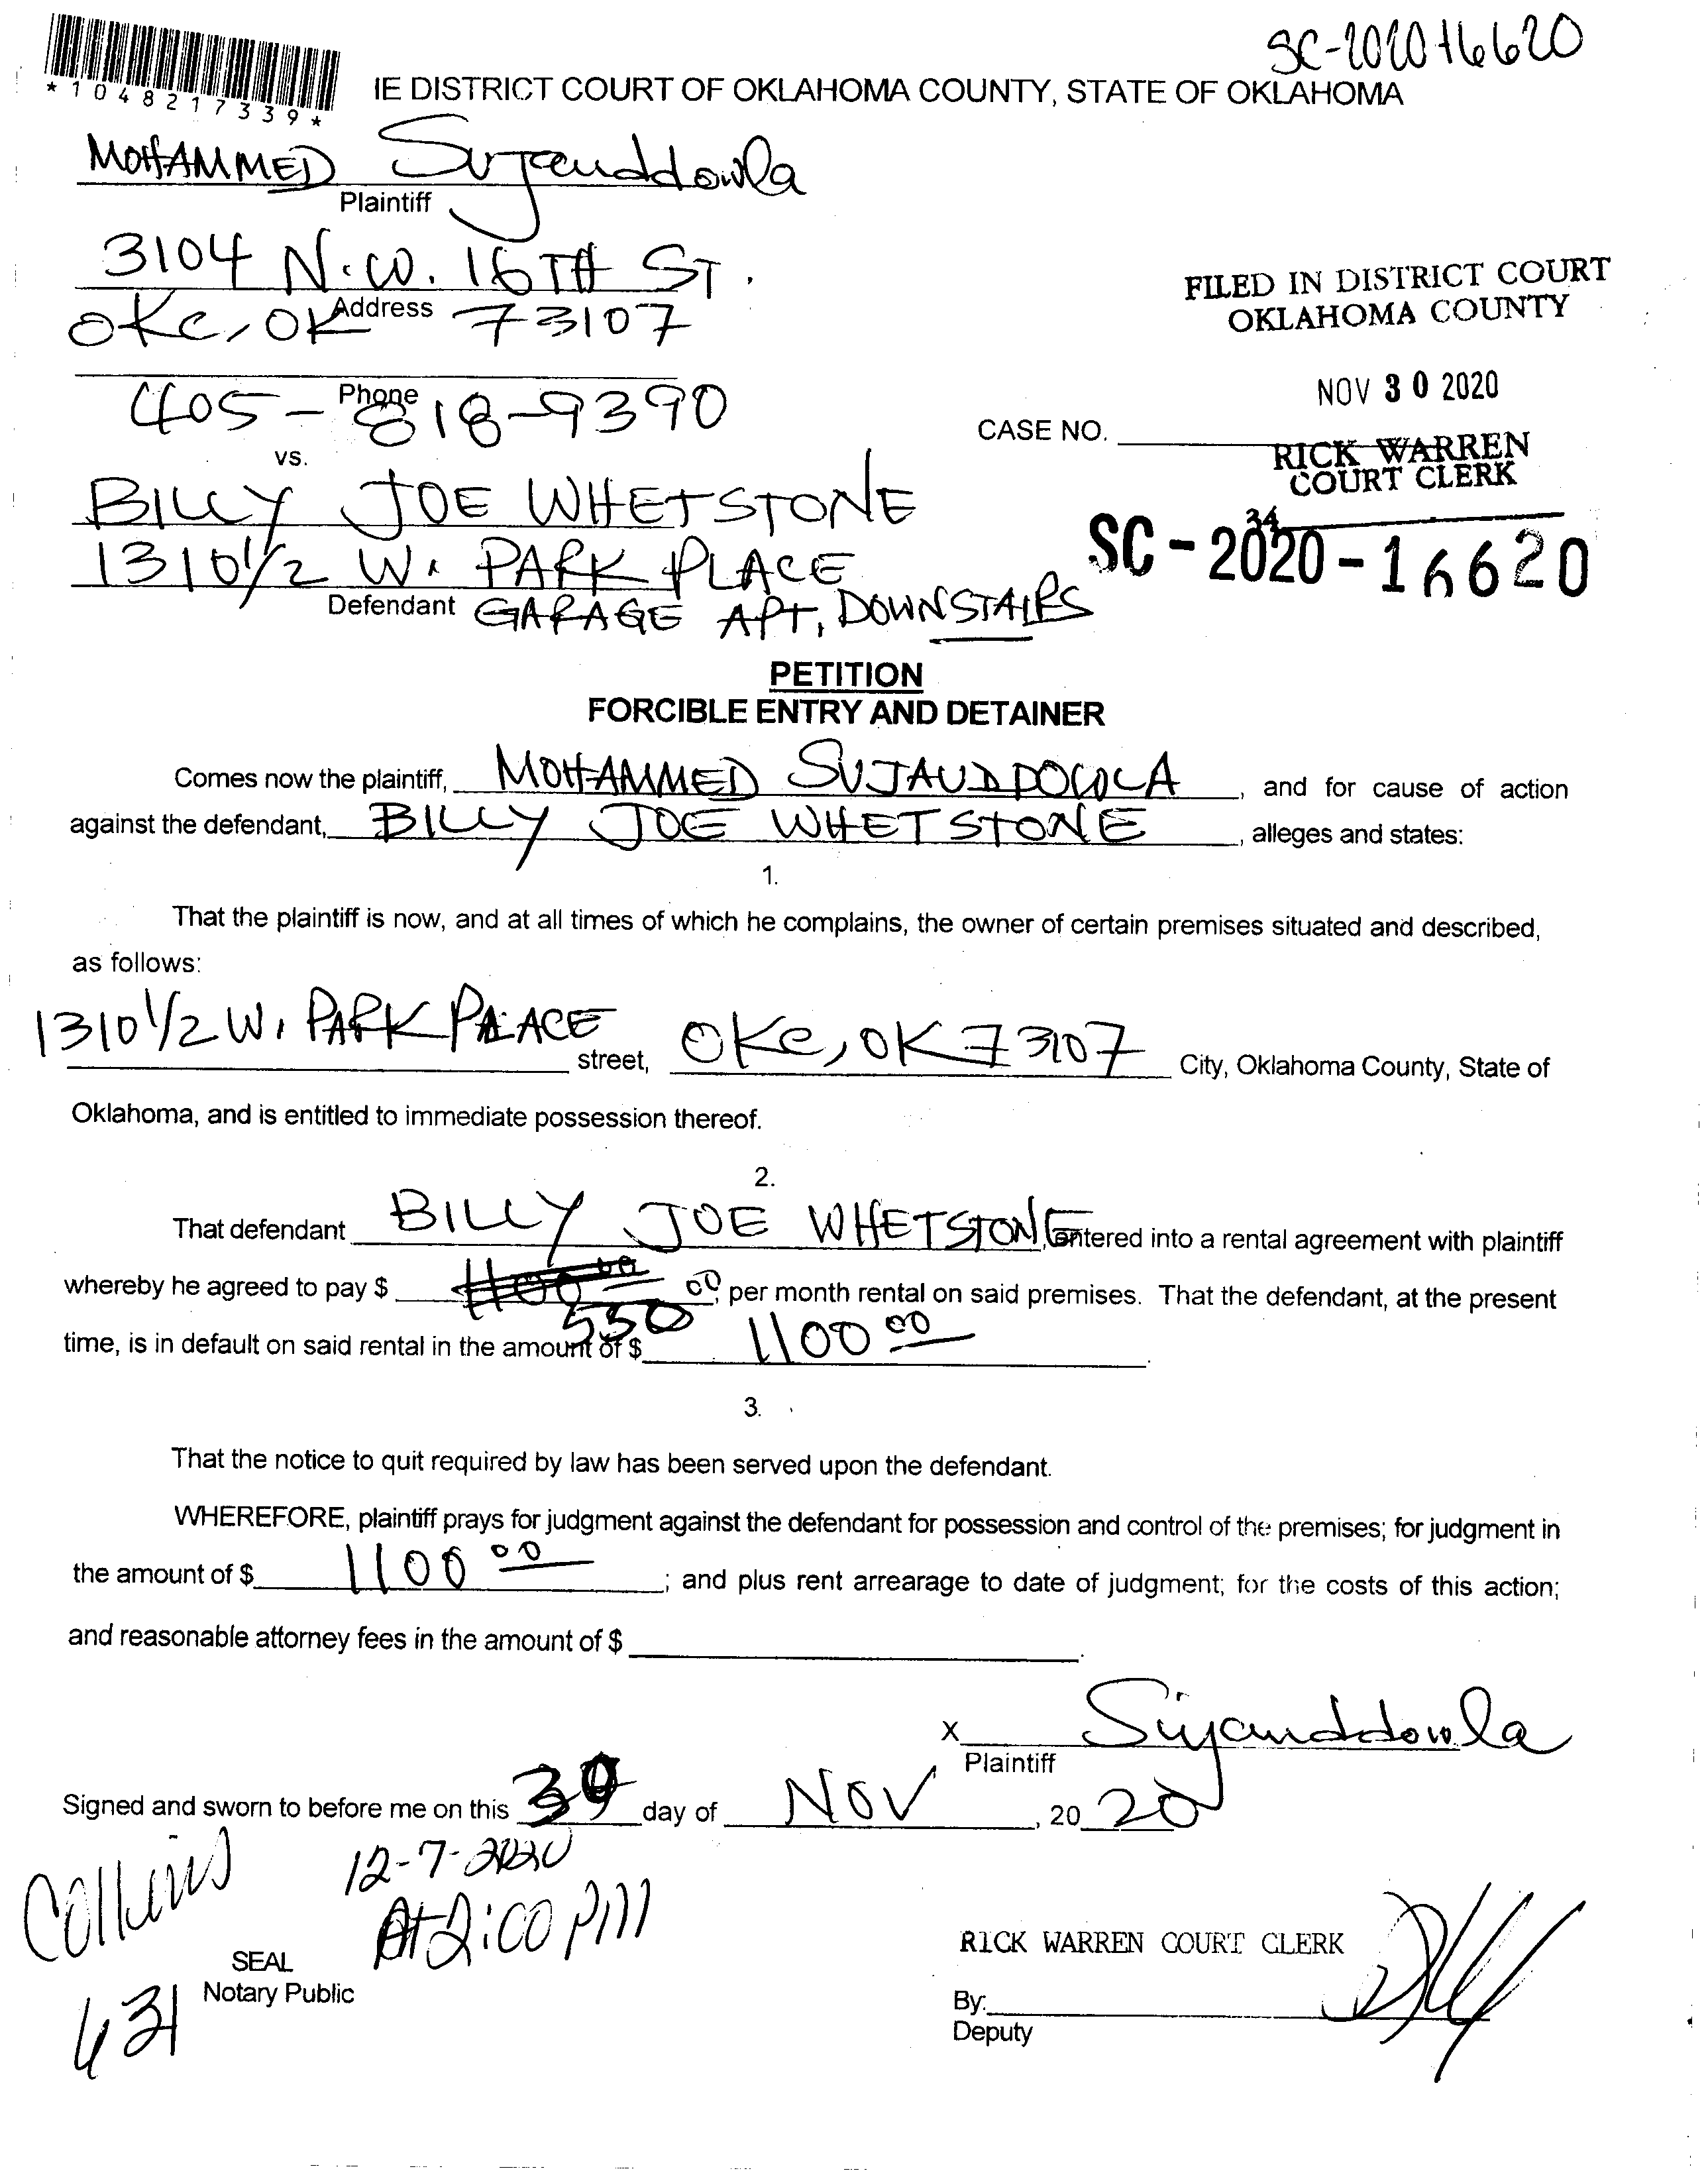 SC-2020-16620
*1048217339*
IE DISTRICT COURT OF OKLAHOMA COUNTY, STATE OF OKLAHOMA
MOHAMMED Sujauddowla
Plaintiff
3104 N.W. 16TH ST.
Address
OKC, OK 73107
FILED IN DISTRICT COURT
OKLAHOMA COUNTY
NOV 30 2020
Phone
405-818-9390
CASE NO.
RICK WARREN
COURT CLERK
34
vs.
BILLY JOE WHETSTONE
1310 1/2 W. PARK PLACE
SC-2020-16620
Defendant
GARAGE APT, DOWNSTAIRS
PETITION
FORCIBLE ENTRY AND DETAINER
Comes now the plaintiff, MOHAMMED SUJAUDDOWLA, and for cause of action
against the defendant, BILLY JOE WHETSTONE, alleges and states:
1.
That the plaintiff is now, and at all times of which he complains, the owner of certain premises situated and described,
as follows:
1310 1/2 W. PARK PLACE street, OKC, OK 73107 City, Oklahoma County, State of
Oklahoma, and is entitled to immediate possession thereof.
2.
That defendant BILLY JOE WHETSTONE, entered into a rental agreement with plaintiff
whereby he agreed to pay $ 1100 00 550 00, per month rental on said premises. That the defendant, at the present
time, is in default on said rental in the amount of $ 1100 00.
3.
That the notice to quit required by law has been served upon the defendant.
WHEREFORE, plaintiff prays for judgment against the defendant for possession and control of the premises; for judgment in
the amount of $ 1100 00; and plus rent arrearage to date of judgment; for the costs of this action;
and reasonable attorney fees in the amount of $ .
X Sujauddowla
Plaintiff
Signed and sworn to before me on this 30 day of NOV, 20 20
Collins
12-7-2020
At 2:00 PM
SEAL
Notary Public
631
RICK WARREN COURT CLERK
By:
Deputy